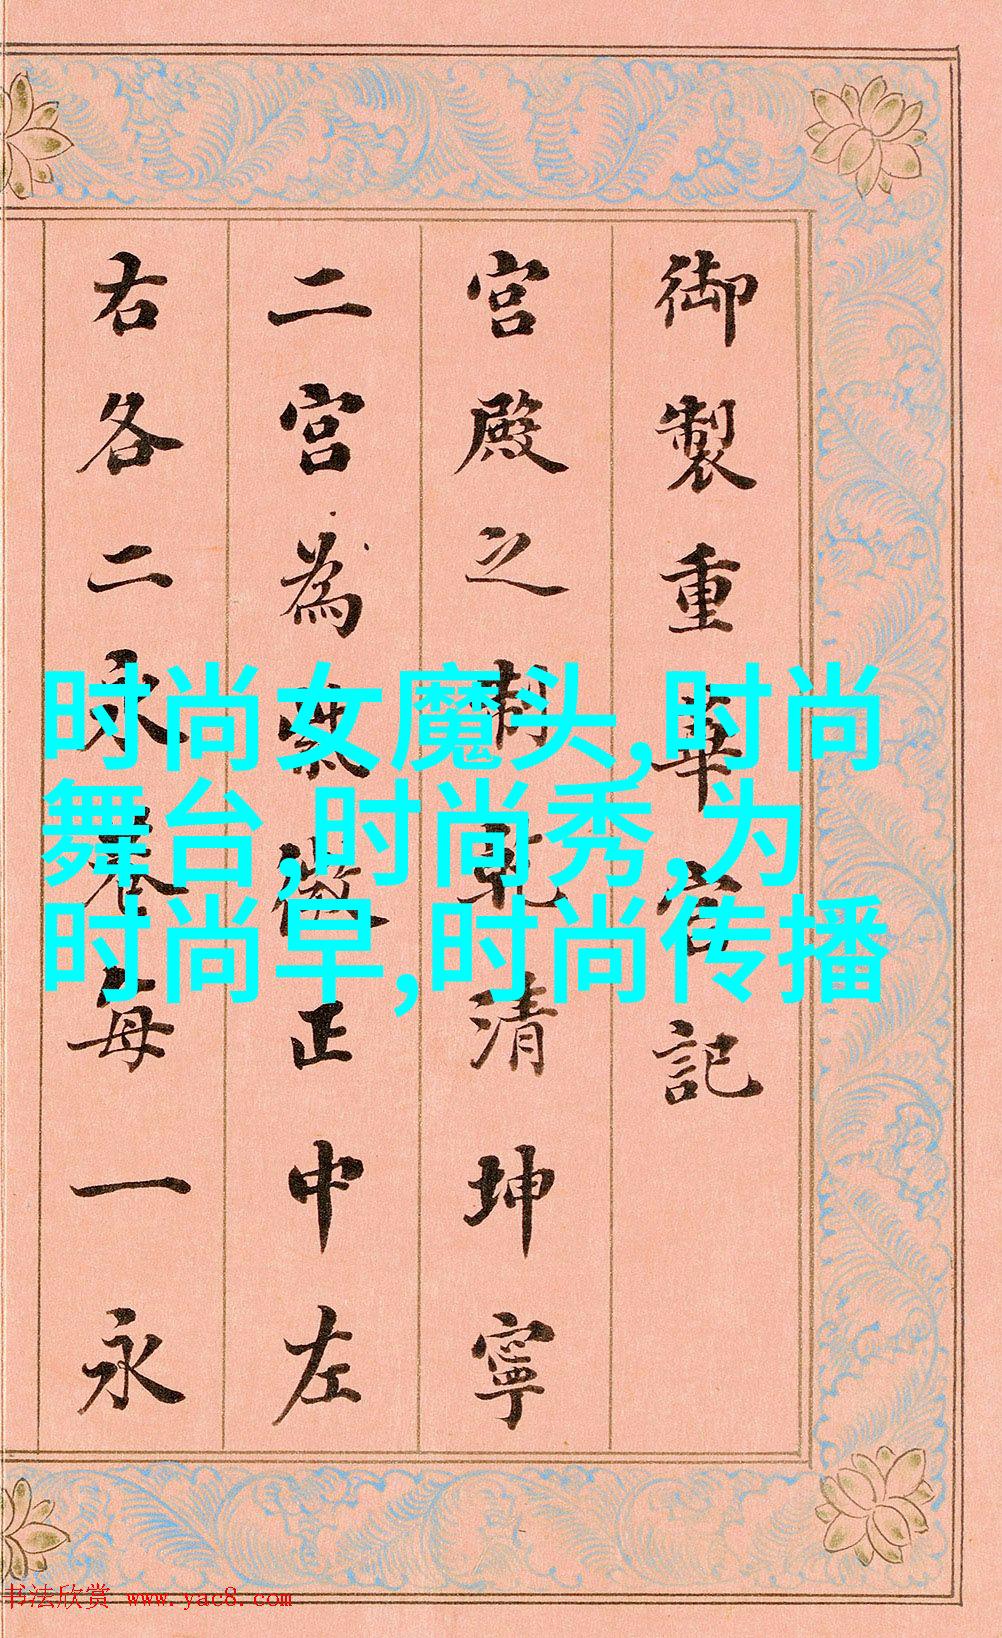 御製重華宮記
宮殿之制乾清坤寧
二宮為紫微正中左
右各二永巷每一永
时尚女魔头,时尚
舞台,时尚秀,为
时尚早,时尚传播
书法欣赏 www.yac8.com